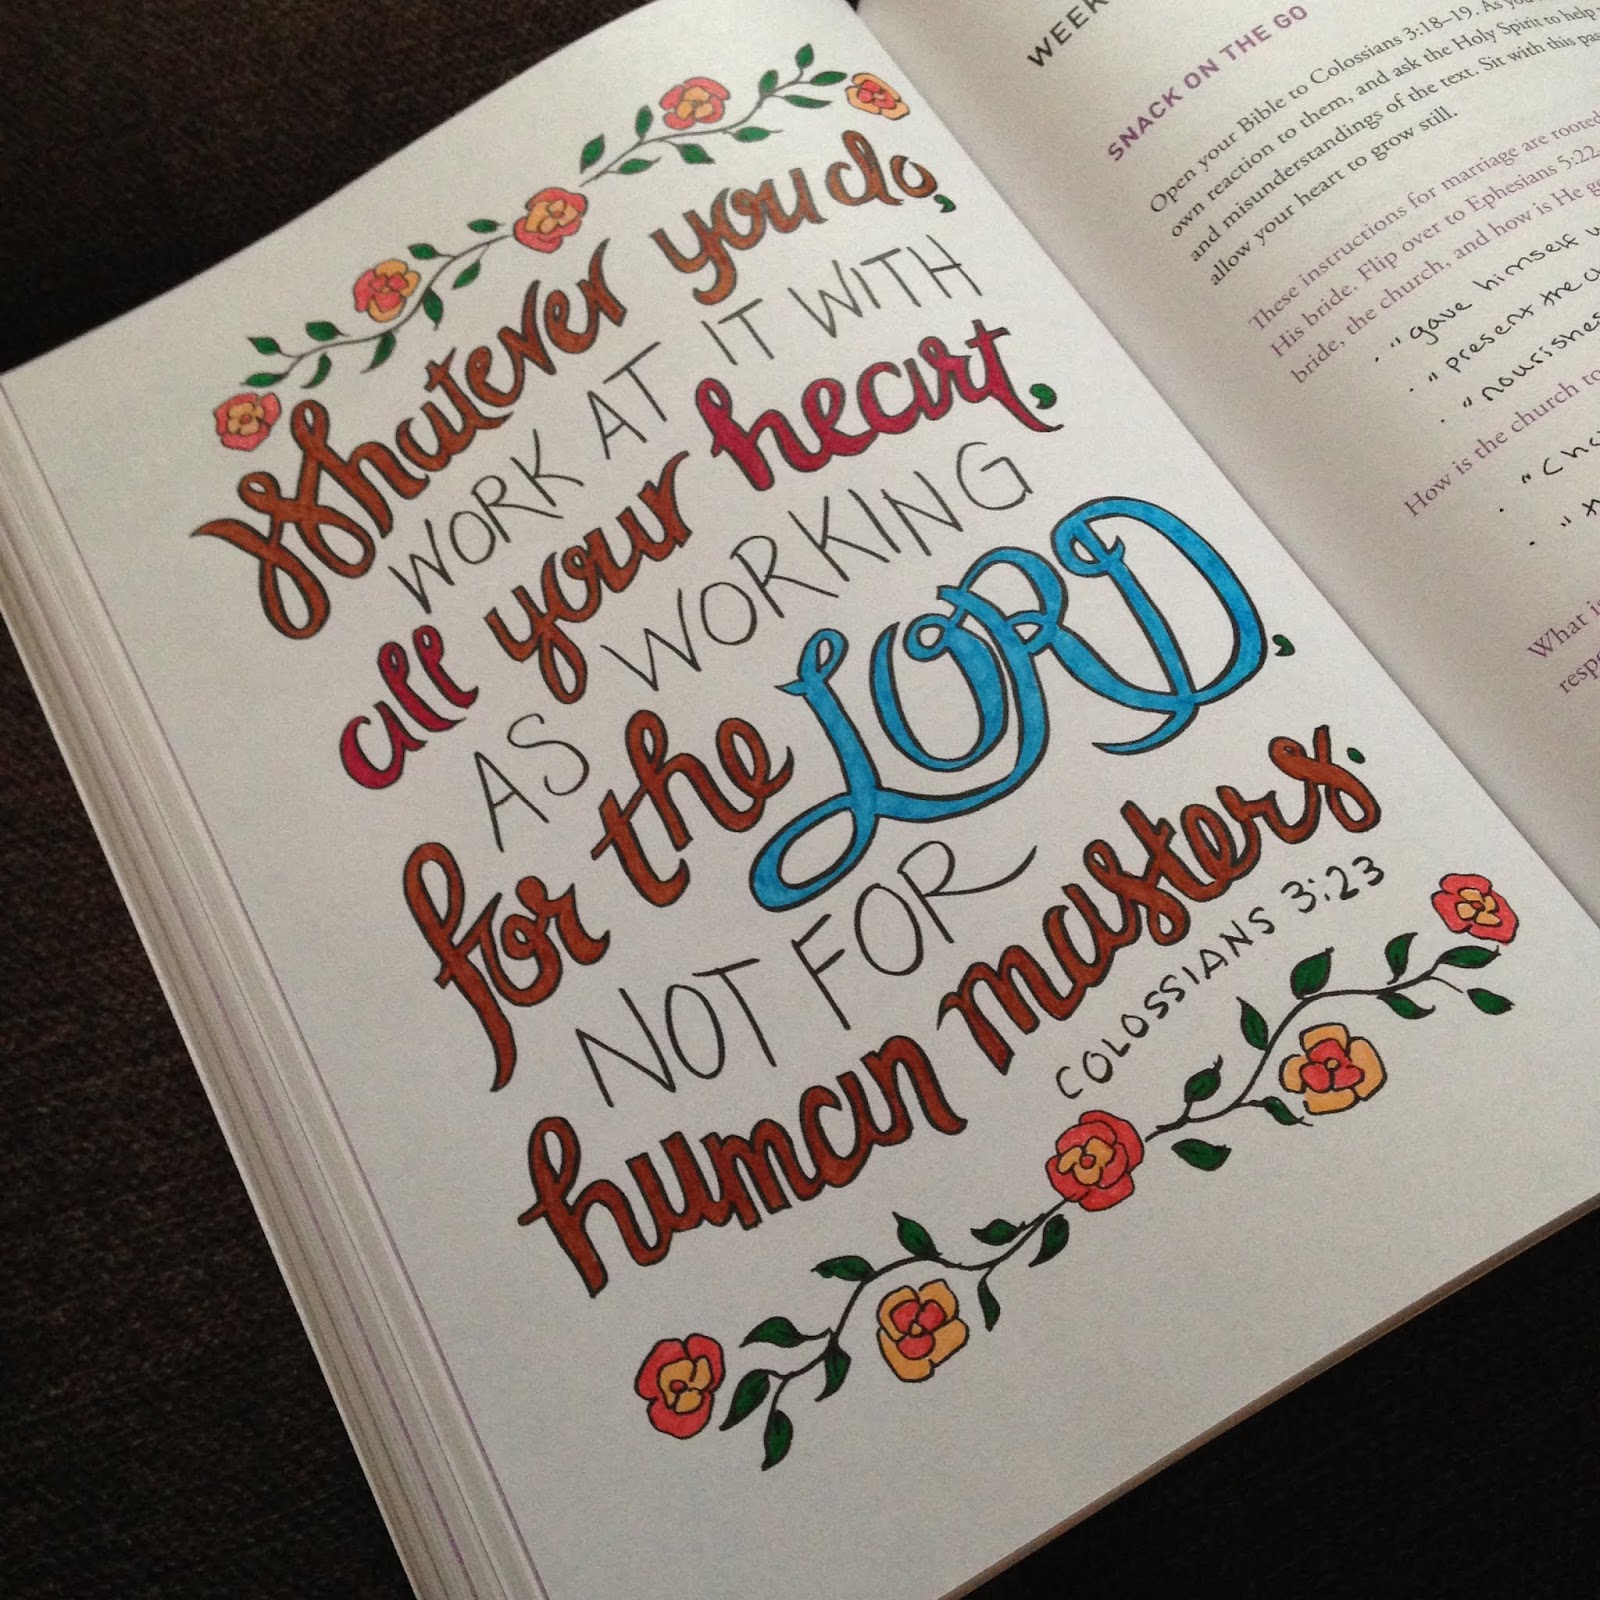 Whatever you do,
WORK AT IT WITH
all your heart,
AS WORKING
for the LORD,
NOT FOR
human masters.
COLOSSIANS 3:23
WEEK
SNACK ON THE GO
Open your Bible to Colossians 3:18–19. As you
own reaction to them, and ask the Holy Spirit to help
and misunderstandings of the text. Sit with this
allow your heart to grow still.
These instructions for marriage are rooted
His bride. Flip over to Ephesians 5:22
bride, the church, and how is He
• "gave himself
• "present the
• "nourishes
How is the church to
•
• "
What is